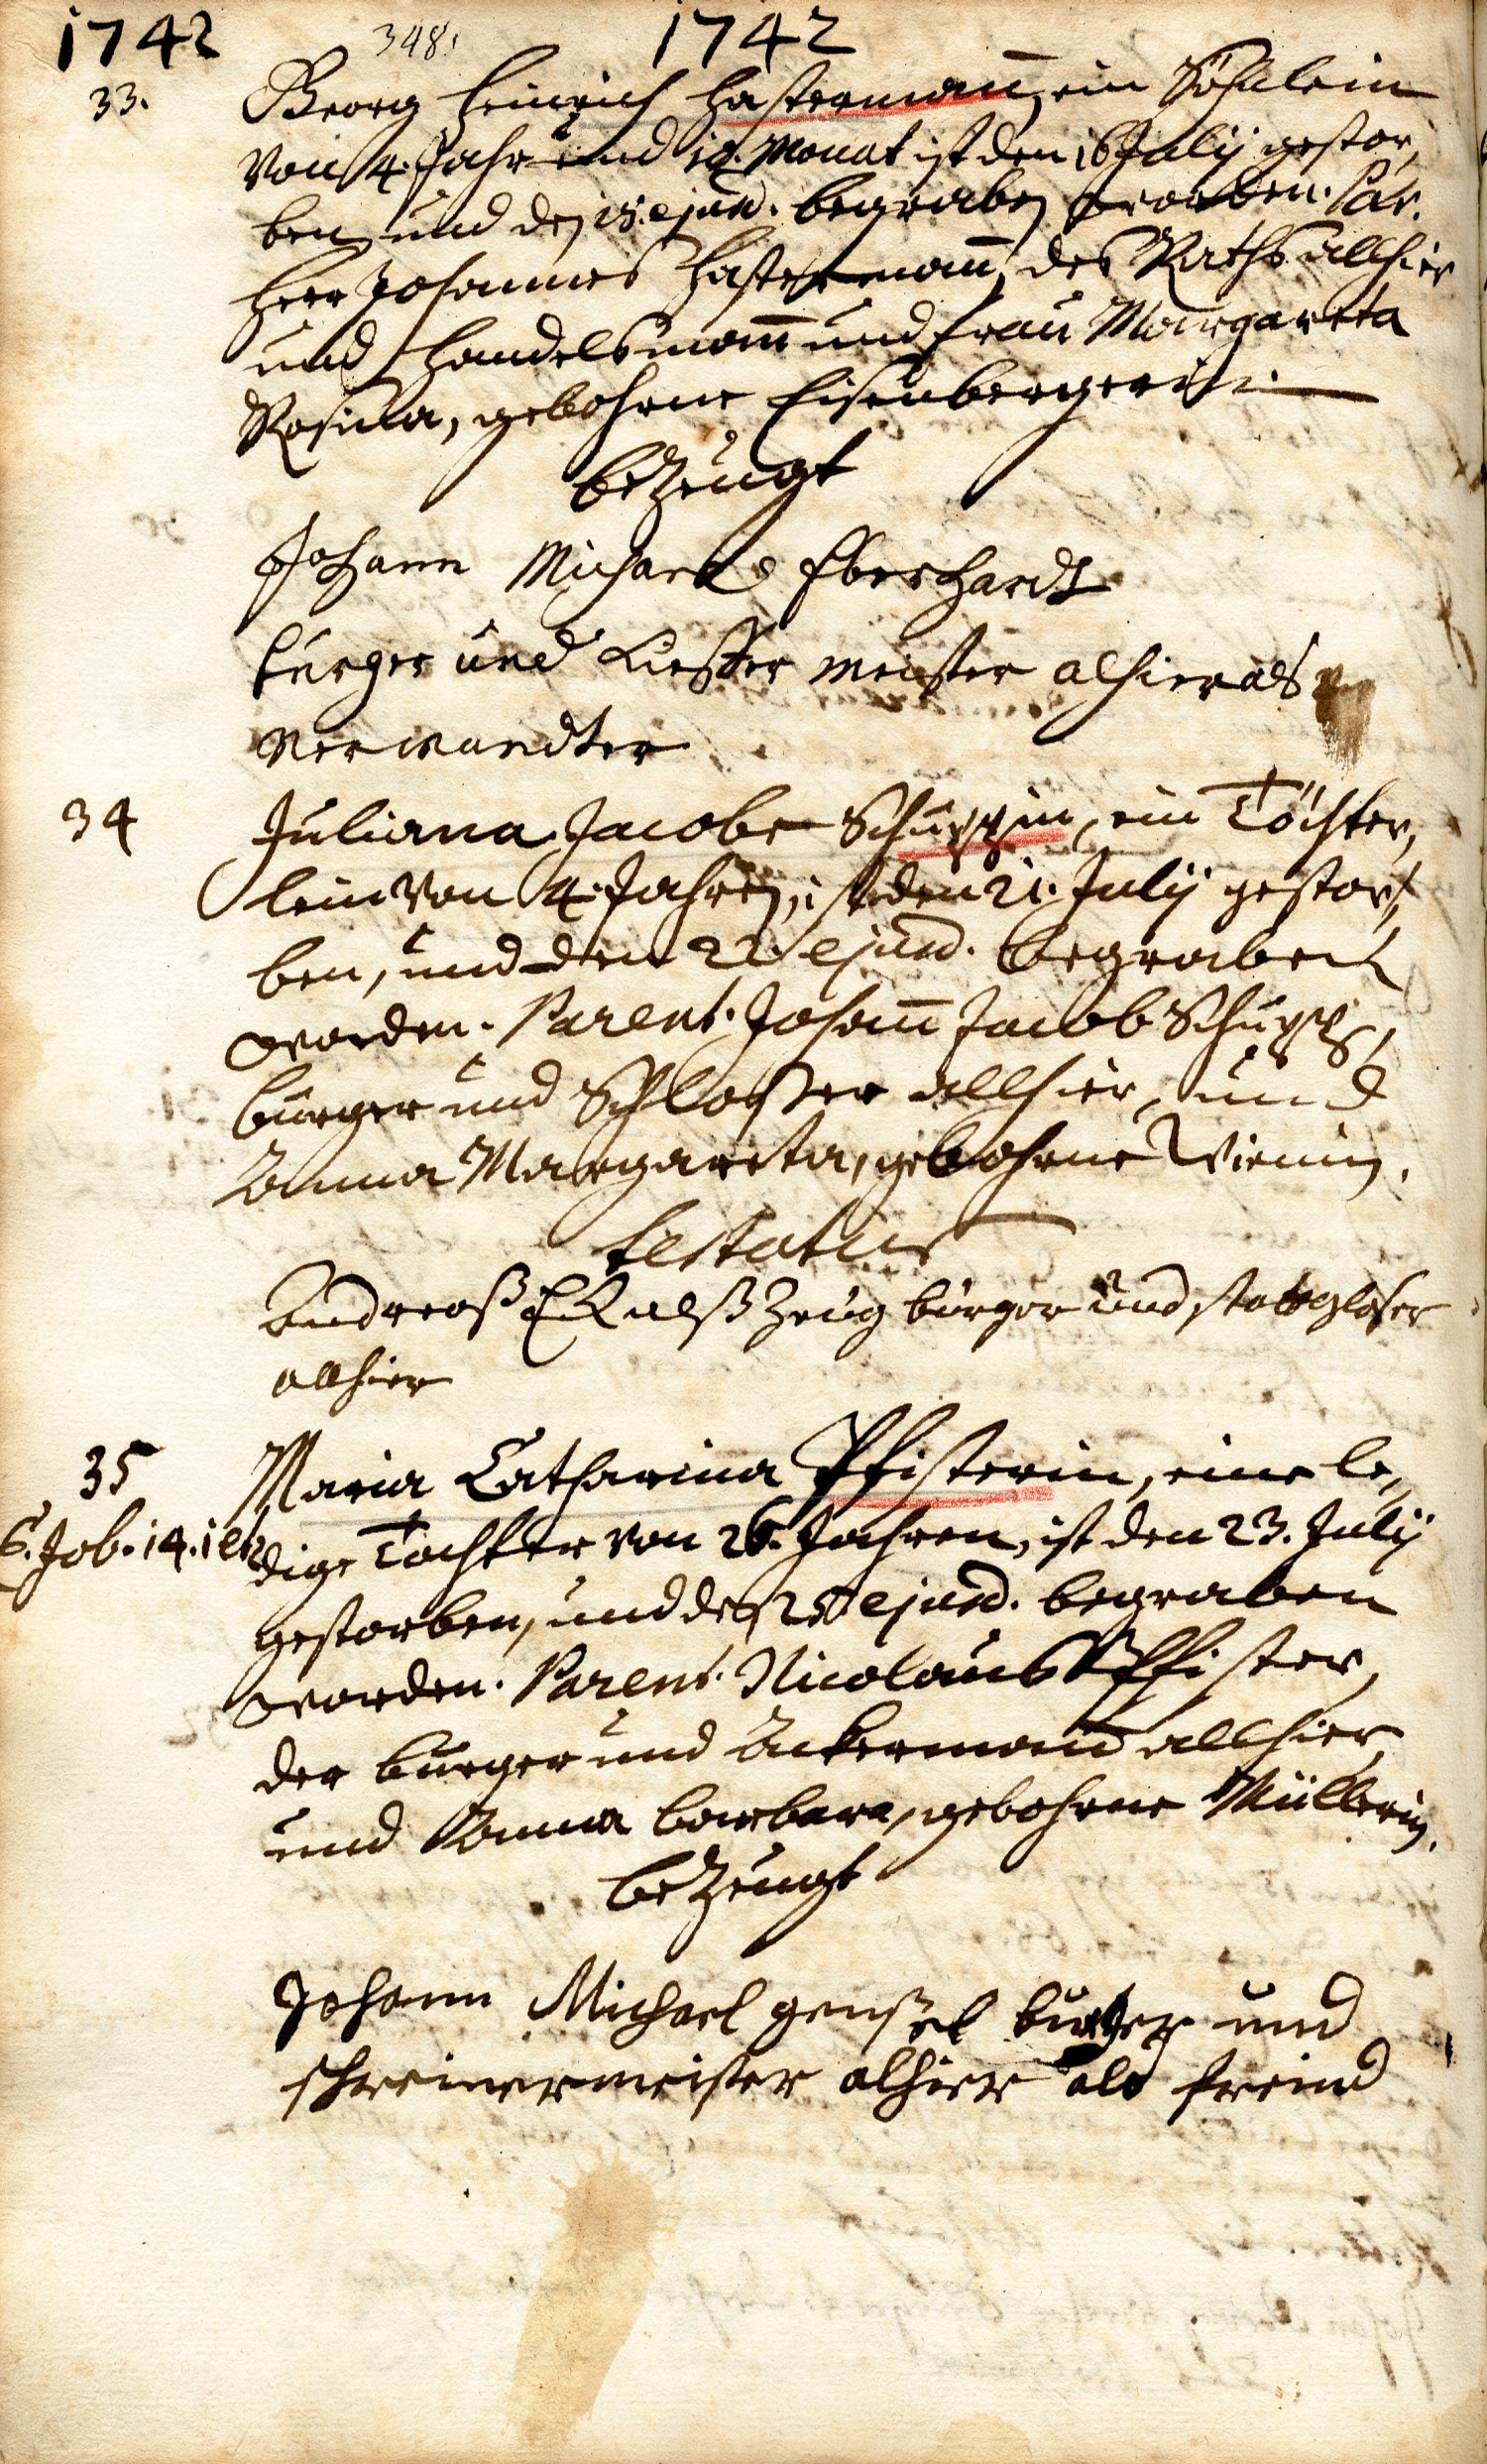 1742 348. 1742
33. Georg Heinrich Hastermañ, ein Söhnlein
von 4. Jahr und 10. Monat ist den 16 Julÿ gestor,
ben und den 18. ejusd. begraben worden. Par.
Herr Johannes Hastermañ, des Raths allhier
und Handelsmañ und Frau Margareta
Rosina, gebohrne Eisenbergerin.
bezeugt
Johann Michael Eberhardt
burger und Kieffer meister alhier als
verwandter
34 Juliana Jacobe Schuppin, ein Töchter,
lein von 4. Jahren, ist den 21. Julÿ gestor,
ben, und den 22. ejusd. begraben
worden. Parent. Johañ Jacob Schupp,
burger und Schlosser allhier, und
Anna Margareta, gebohrne
testatur
Andreaß alß Zeug bürger und stattglaser
allhier
35 Maria Catharina Pfisterin, eine le,
S. Job. 14. 1 et 2 dige Tochter von 26. Jahren, ist den 23. Julÿ
gestorben, und den 25 ejusd. begraben
worden. Parent. Nicolaus Pfister,
der burger und Ackermañ allhier
und Anna barbara, gebohrne Müllerin.
bezeugt
Johann Michael burger und
schreinermeister alhier als freind